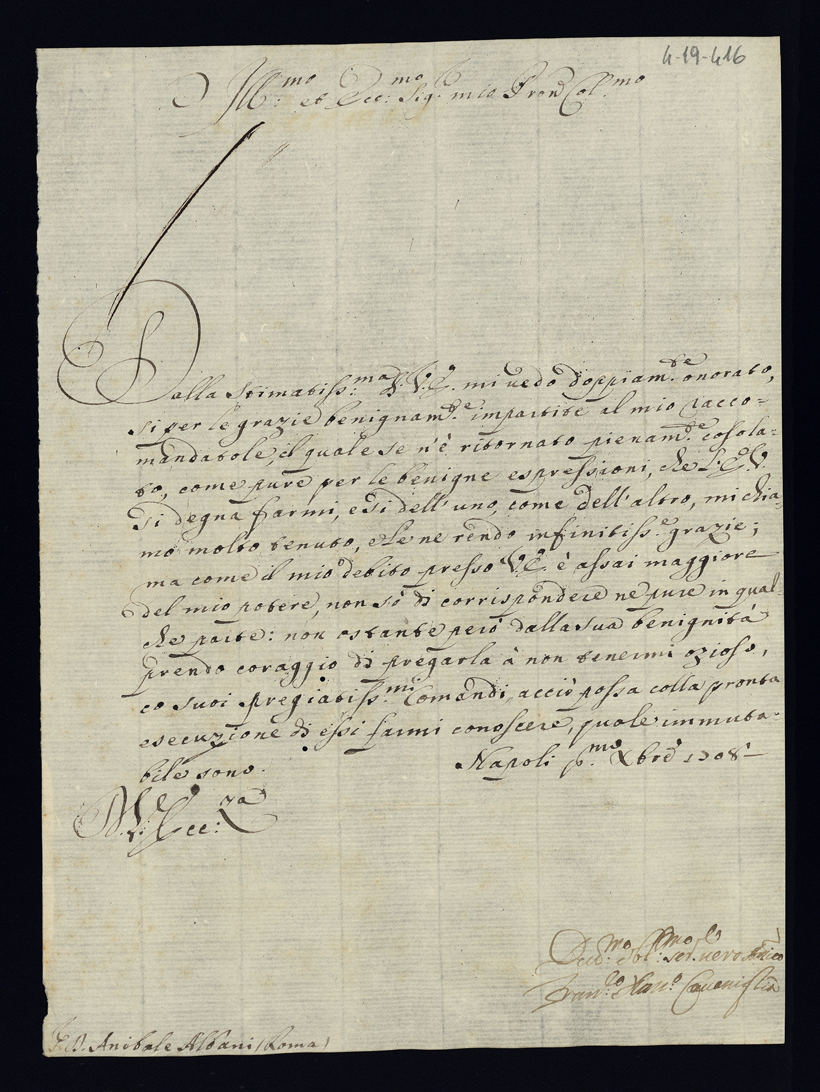 4-19-416
Ill:mo et Ecc:mo Sig:r mio Pron Col:mo
Dalla Stimatiss:ma di V.E. mi vedo doppiam:te onorato,
si per le grazie benignam:te impartite al mio racco=
mandatole, il quale se n'è ritornato pienam:te cosola=
to, come pure per le benigne espressioni, che l'E.V.
si degna farmi, e si dell'uno, come dell'altro, mi chia=
mo molto tenuto, e le ne rendo infinitiss:e grazie;
ma come il mio debito presso V.E. è assai maggiore
del mio potere, non sò di corrispondere ne pure in qual=
che parte: non ostante però dalla sua benignità
prendo coraggio di pregarla à non tenermi ozioso,
co suoi pregiatiss:mi Comandi, acciò possa colla pronta
esecuzione di essi farmi conoscere, quale immuta=
bile sono.
Napoli p:mo Xbre 1708
D.V.Ecc:za
Dev:mo Obl:mo ser:
vero Amico
Fran:co
D. Anibale Albani (Roma)